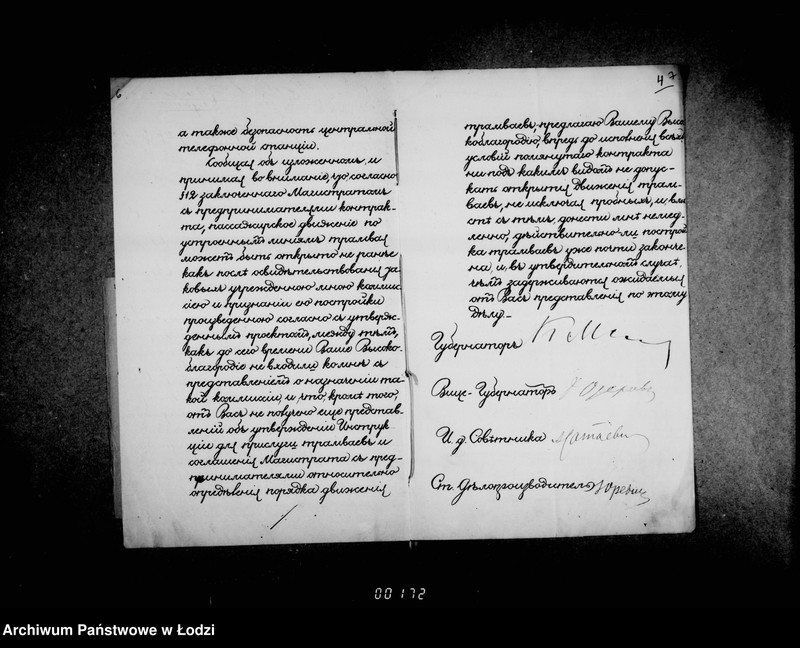 6
а также безопасность центральной
телефонной станціи.
Сообщая объ изложенномъ, и
принимая во вниманіе, что согласно
§12 заключеннаго Магистратомъ
съ предпринимателями контрак-
та, пассажирское движеніе по
устроеннымъ линіямъ трамвая
можетъ быть открыто не ранѣе
какъ послѣ освидѣтельствованія та-
ковыхъ учрежденною мною коммис-
сіею и признанія ею постройки
произведенною согласно съ утверж-
деннымъ проектомъ, между тѣмъ,
какъ до сего времени Ваше Высоко-
благородіе не входили ко мнѣ съ
представленіемъ о назначеніи та-
кой коммисіи и, что, кромѣ того,
отъ Васъ не получено еще представ-
леній объ утвержденіи Инструк-
ціи для прислуги трамваевъ и
соглашенія Магистрата съ пред-
принимателями относительно
опредѣленія порядка движенія
4 7
трамваевъ, предлагаю Вашему Высо-
коблагородію, впредь до исполненія всѣхъ
условій помянутаго контракта
ни подъ какимъ видомъ не допус-
кать открытія движенія трам-
ваевъ, не исключая пробныхъ, и, вмѣ-
стѣ съ тѣмъ, донести мнѣ немед-
ленно, дѣйствительно ли построй-
ка трамваевъ уже почти закончe-
на и, въ утвердительномъ случаѣ,
чѣмъ задерживаются ожидаемыя
отъ Васъ представленія по этому
дѣлу.
Губернаторъ
Вице-Губернаторъ
И. д. Совѣтника
Ст. Дѣлопроизводитель
00172
Archiwum Państwowe w Łodzi